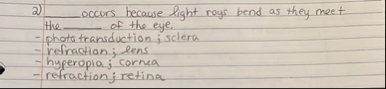 2) ____ occurs because light rays bend as they meet
the ____ of the eye.
- phototransduction ; sclera
- refraction ; lens
- hyperopia ; cornea
- refraction ; retina